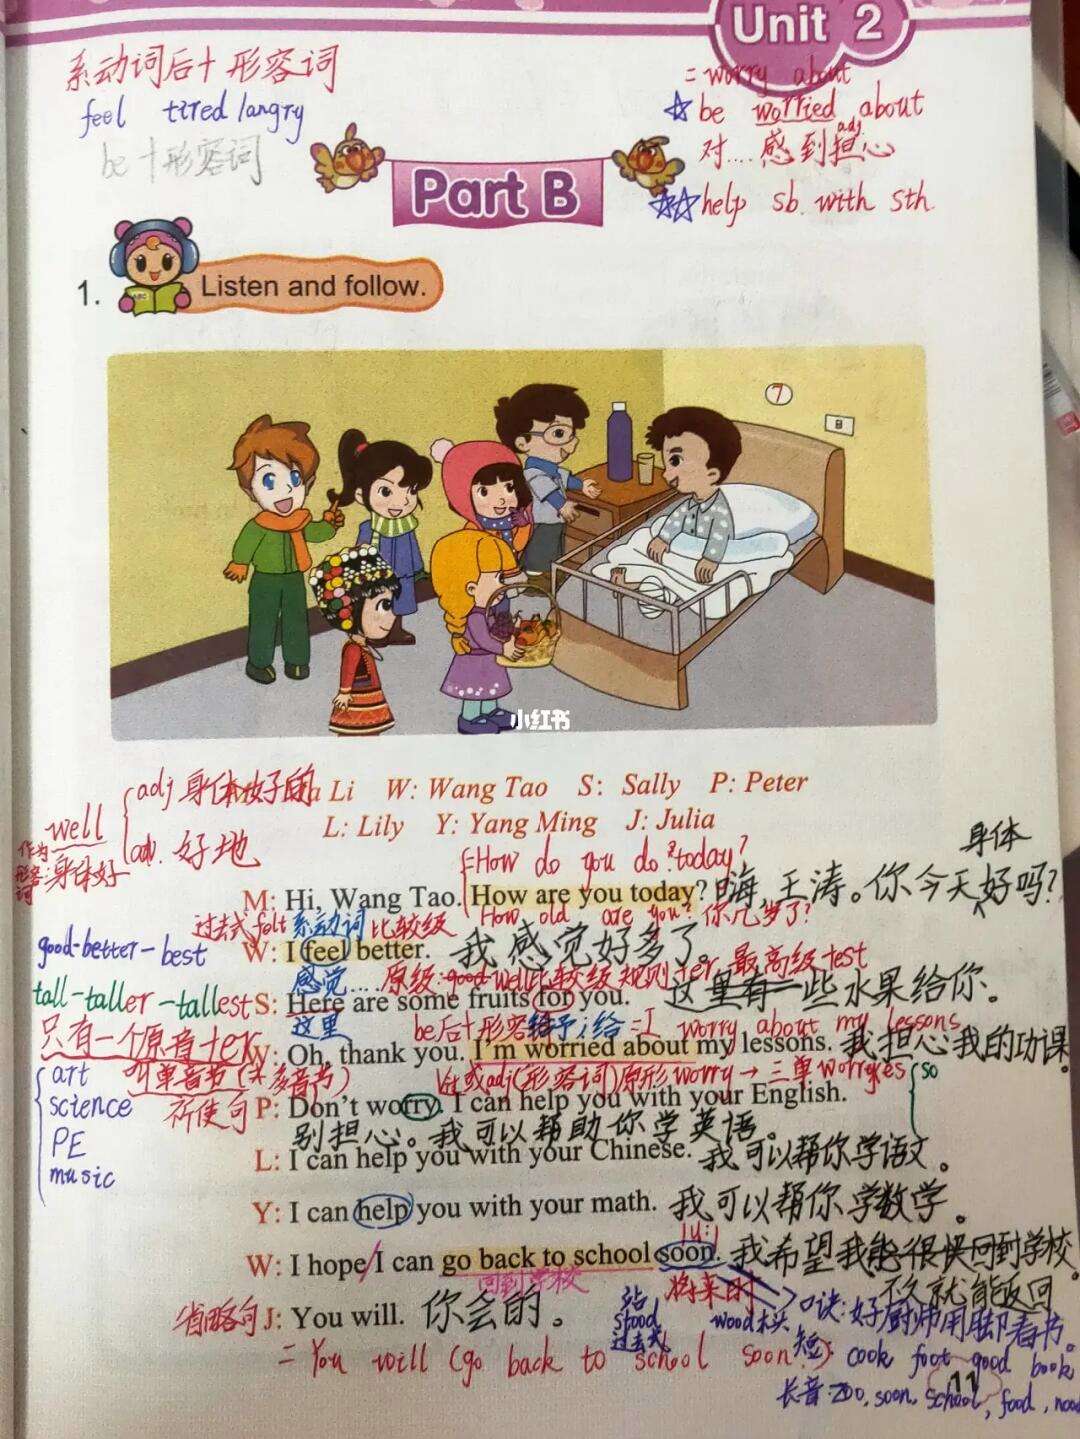 Unit 2
系动词后+形容词
= worry about
feel tired/angry
☆be worried about
be+形容词
adj
对....感到担心
Part B
☆☆help sb. with sth.
1. Listen and follow.
7
8
小红书
adj 身体好的
a Li W: Wang Tao S: Sally P: Peter
well
L: Lily Y: Yang Ming J: Julia
作为形容词:身体好
adv. 好地
=How do you do today?
身体
M: Hi, Wang Tao. How are you today? 嗨,王涛。你今天好吗?
过去式felt 系动词 比较级
How old are you? 你几岁了?
good-better-best
W: I feel better. 我感觉好多了。
感觉.... 原级:good well 比较级规则+er 最高级+est
tall-taller-tallest
S: Here are some fruits for you. 这里有一些水果给你。
这里
be后+形容 给予;给 =I worry about my lessons
只有一个原音+er
W: Oh, thank you. I'm worried about my lessons. 我担心我的功课。
叫单音节(大多音节)
V或adj(形容词)原形 worry → 三单worryies
so
art
science
PE
music
祈使句
P: Don't worry. I can help you with your English.
别担心。我可以帮助你学英语。
L: I can help you with your Chinese. 我可以帮你学语文。
Y: I can help you with your math. 我可以帮你学数学。
/u:/
W: I hope I can go back to school soon. 我希望我能很快回到学校。
回到学校
将来时
不久就能返回
省略句
J: You will. 你会的。
站
stood
过去式
wood 木头
口诀:好厨师用脚看书。
= You will (go back to school soon.)
短: cook foot good book
11
长音:zoo, soon, school, food, noo